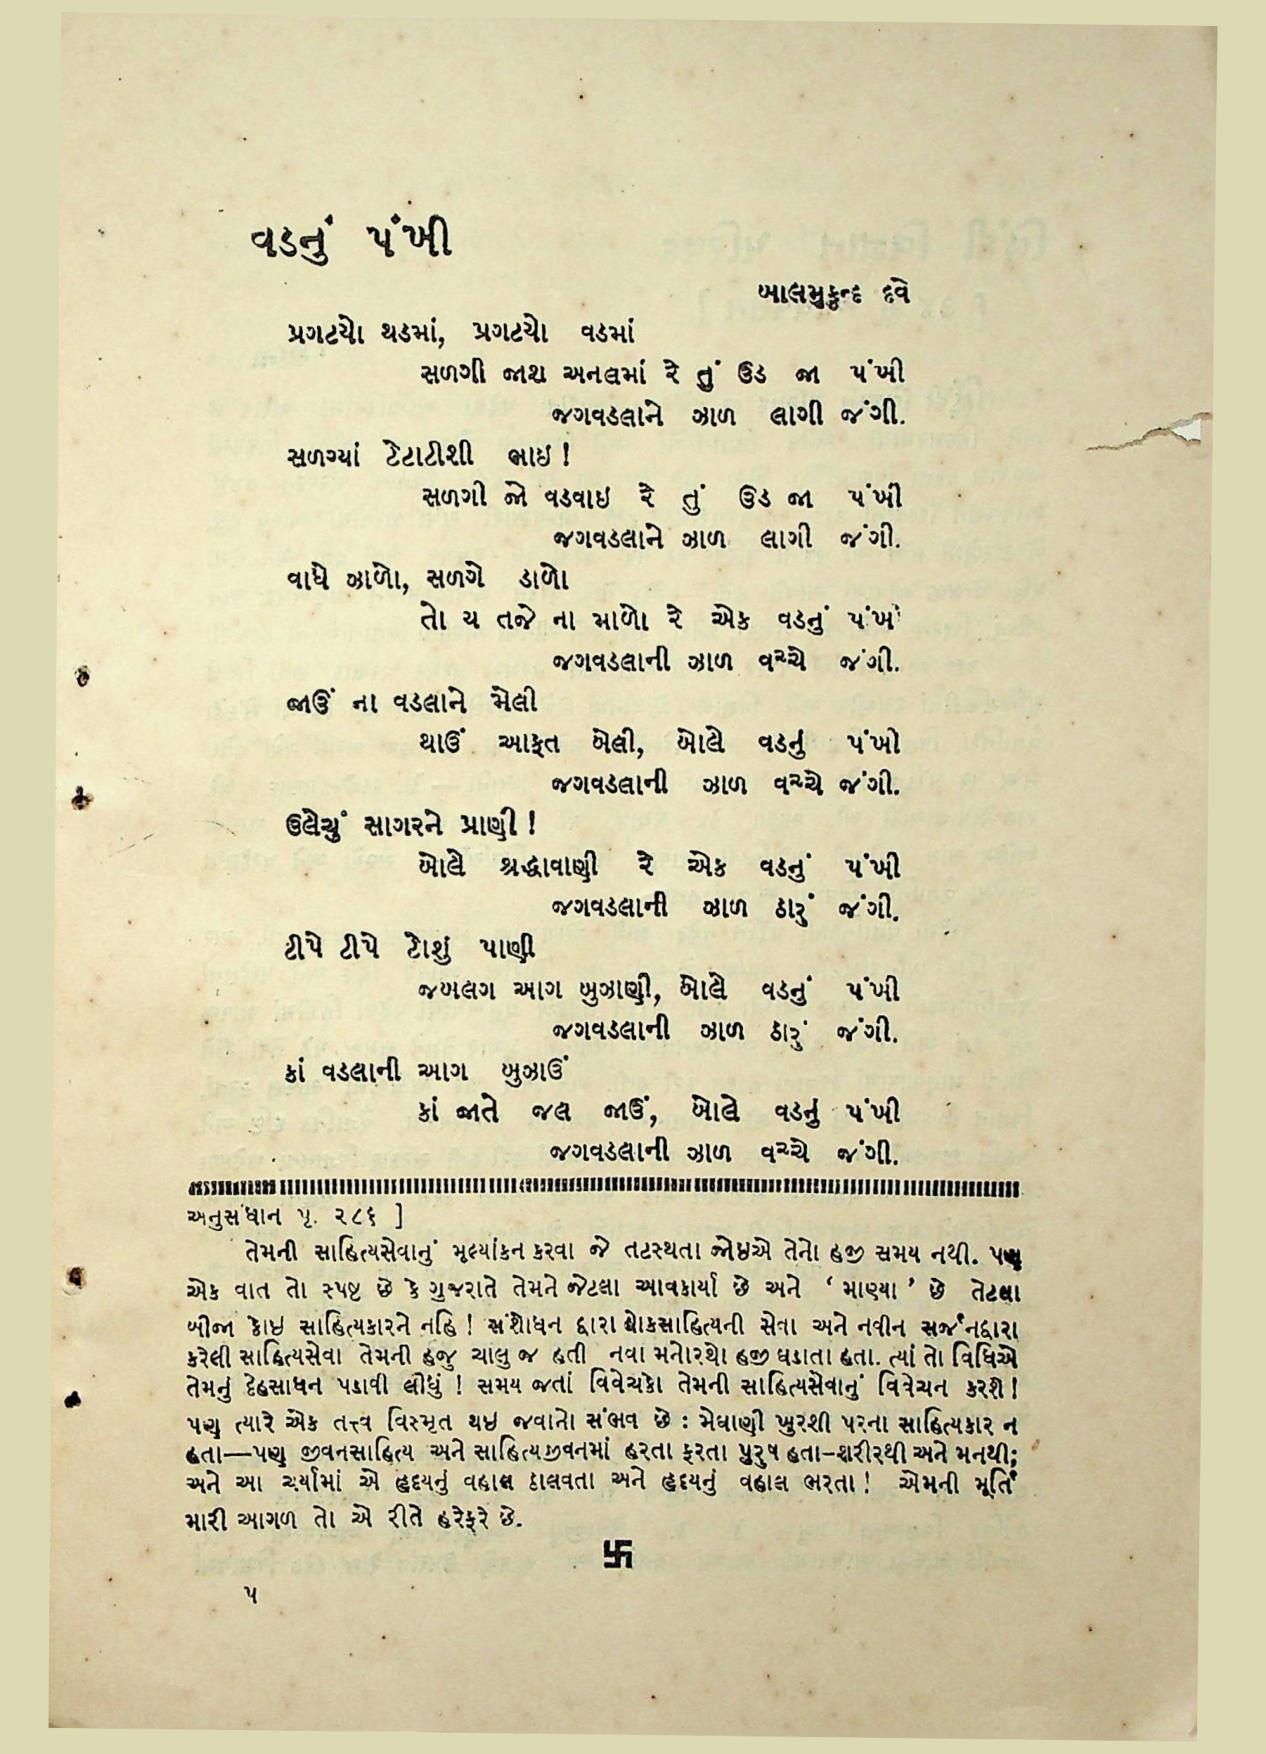 વડનું પંખી
બાલમુકુન્દ દવે
પ્રગટયો થડમાં, પ્રગટયો વડમાં
સળગી જાશ અનલમાં રે તું ઉડ જા પંખી
જગવડલાને ઝાળ લાગી જંગી.
સળગ્યાં ટેટાટીશી ભાઇ !
સળગી જો વડવાઇ રે તું ઉડ જા પંખી
જગવડલાને ઝાળ લાગી જંગી.
વાધે ઝાળો, સળગે ડાળો
તો ય તજે ના માળો રે એક વડનું પંખી
જગવડલાની ઝાળ વચ્ચે જંગી.
જાઉં ના વડલાને મેલી
થાઉં આફત બેલી, બોલે વડનું પંખી
જગવડલાની ઝાળ વચ્ચે જંગી.
ઉલેચું સાગરને પ્રાણી !
બોલે શ્રદ્ધાવાણી રે એક વડનું પંખી
જગવડલાની ઝાળ ઠારું જંગી.
ટીપે ટીપે ટોશું પાણી
જબલગ આગ બુઝાણી, બોલે વડનું પંખી
જગવડલાની ઝાળ ઠારું જંગી.
કાં વડલાની આગ બુઝાઉં
કાં જાતે જલ જાઉં, બોલે વડનું પંખી
જગવડલાની ઝાળ વચ્ચે જંગી.
અનુસંધાન પૃ. ૨૮૬ ]
તેમની સાહિત્યસેવાનું મૂલ્યાંકન કરવા જે તટસ્થતા જોઇએ તેનો હજી સમય નથી. પણ
એક વાત તો સ્પષ્ટ છે કે ગુજરાતે તેમને જેટલા આવકાર્યા છે અને ‘ માણ્યા ’ છે તેટલા
બીજા કોઇ સાહિત્યકારને નહિ ! સંશોધન દ્વારા લોકસાહિત્યની સેવા અને નવીન સર્જનદ્વારા
કરેલી સાહિત્યસેવા તેમની હજુ ચાલુ જ હતી નવા મનોરથો હજી ઘડાતા હતા. ત્યાં તો વિધિએ
તેમનું દેહસાધન પડાવી લીધું ! સમય જતાં વિવેચકો તેમની સાહિત્યસેવાનું વિવેચન કરશે !
પણ ત્યારે એક તત્ત્વ વિસ્મૃત થઇ જવાનો સંભવ છે : મેઘાણી ખુરશી પરના સાહિત્યકાર ન
હતા—પણ જીવનસાહિત્ય અને સાહિત્યજીવનમાં હરતા ફરતા પુરુષ હતા-શરીરથી અને મનથી;
અને આ ચર્યામાં એ હૃદયનું વહાલ ઠાલવતા અને હૃદયનું વહાલ ભરતા ! એમની મૂર્તિ
મારી આગળ તો એ રીતે હરેફરે છે.
卐
૫